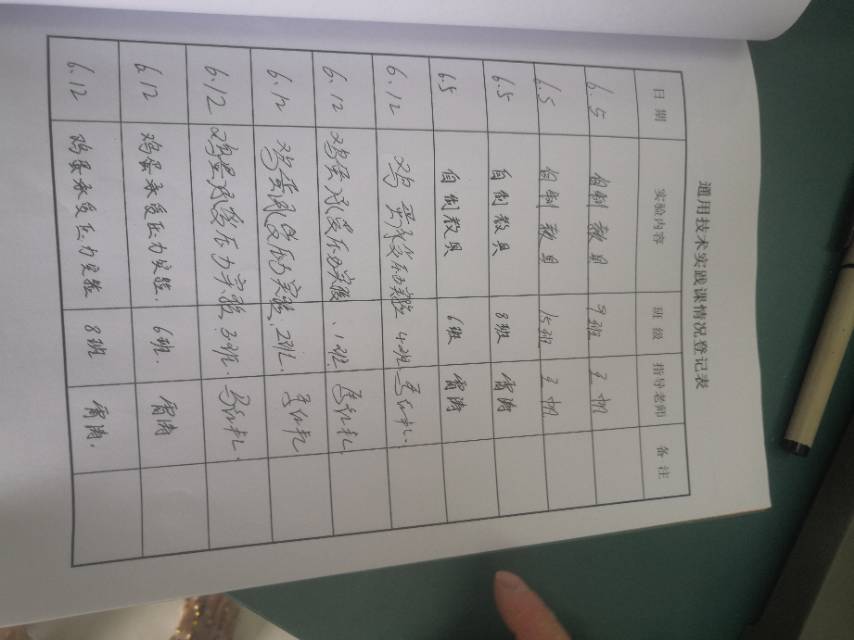 通用技术实践课情况登记表
日期 实验内容 班级 指导老师 备注
6.5 自制教具 9班 王
6.5 自制教具 15班 王
6.5 自制教具 8班 雷涛
6.5 自制教具 6班 雷涛
6.12 鸡蛋承受压力实验 4班
6.12 鸡蛋承受压力实验 1班
6.12 鸡蛋承受压力实验 2班
6.12 鸡蛋承受压力实验 3班
6.12 鸡蛋承受压力实验 6班 雷涛
6.12 鸡蛋承受压力实验 8班 雷涛